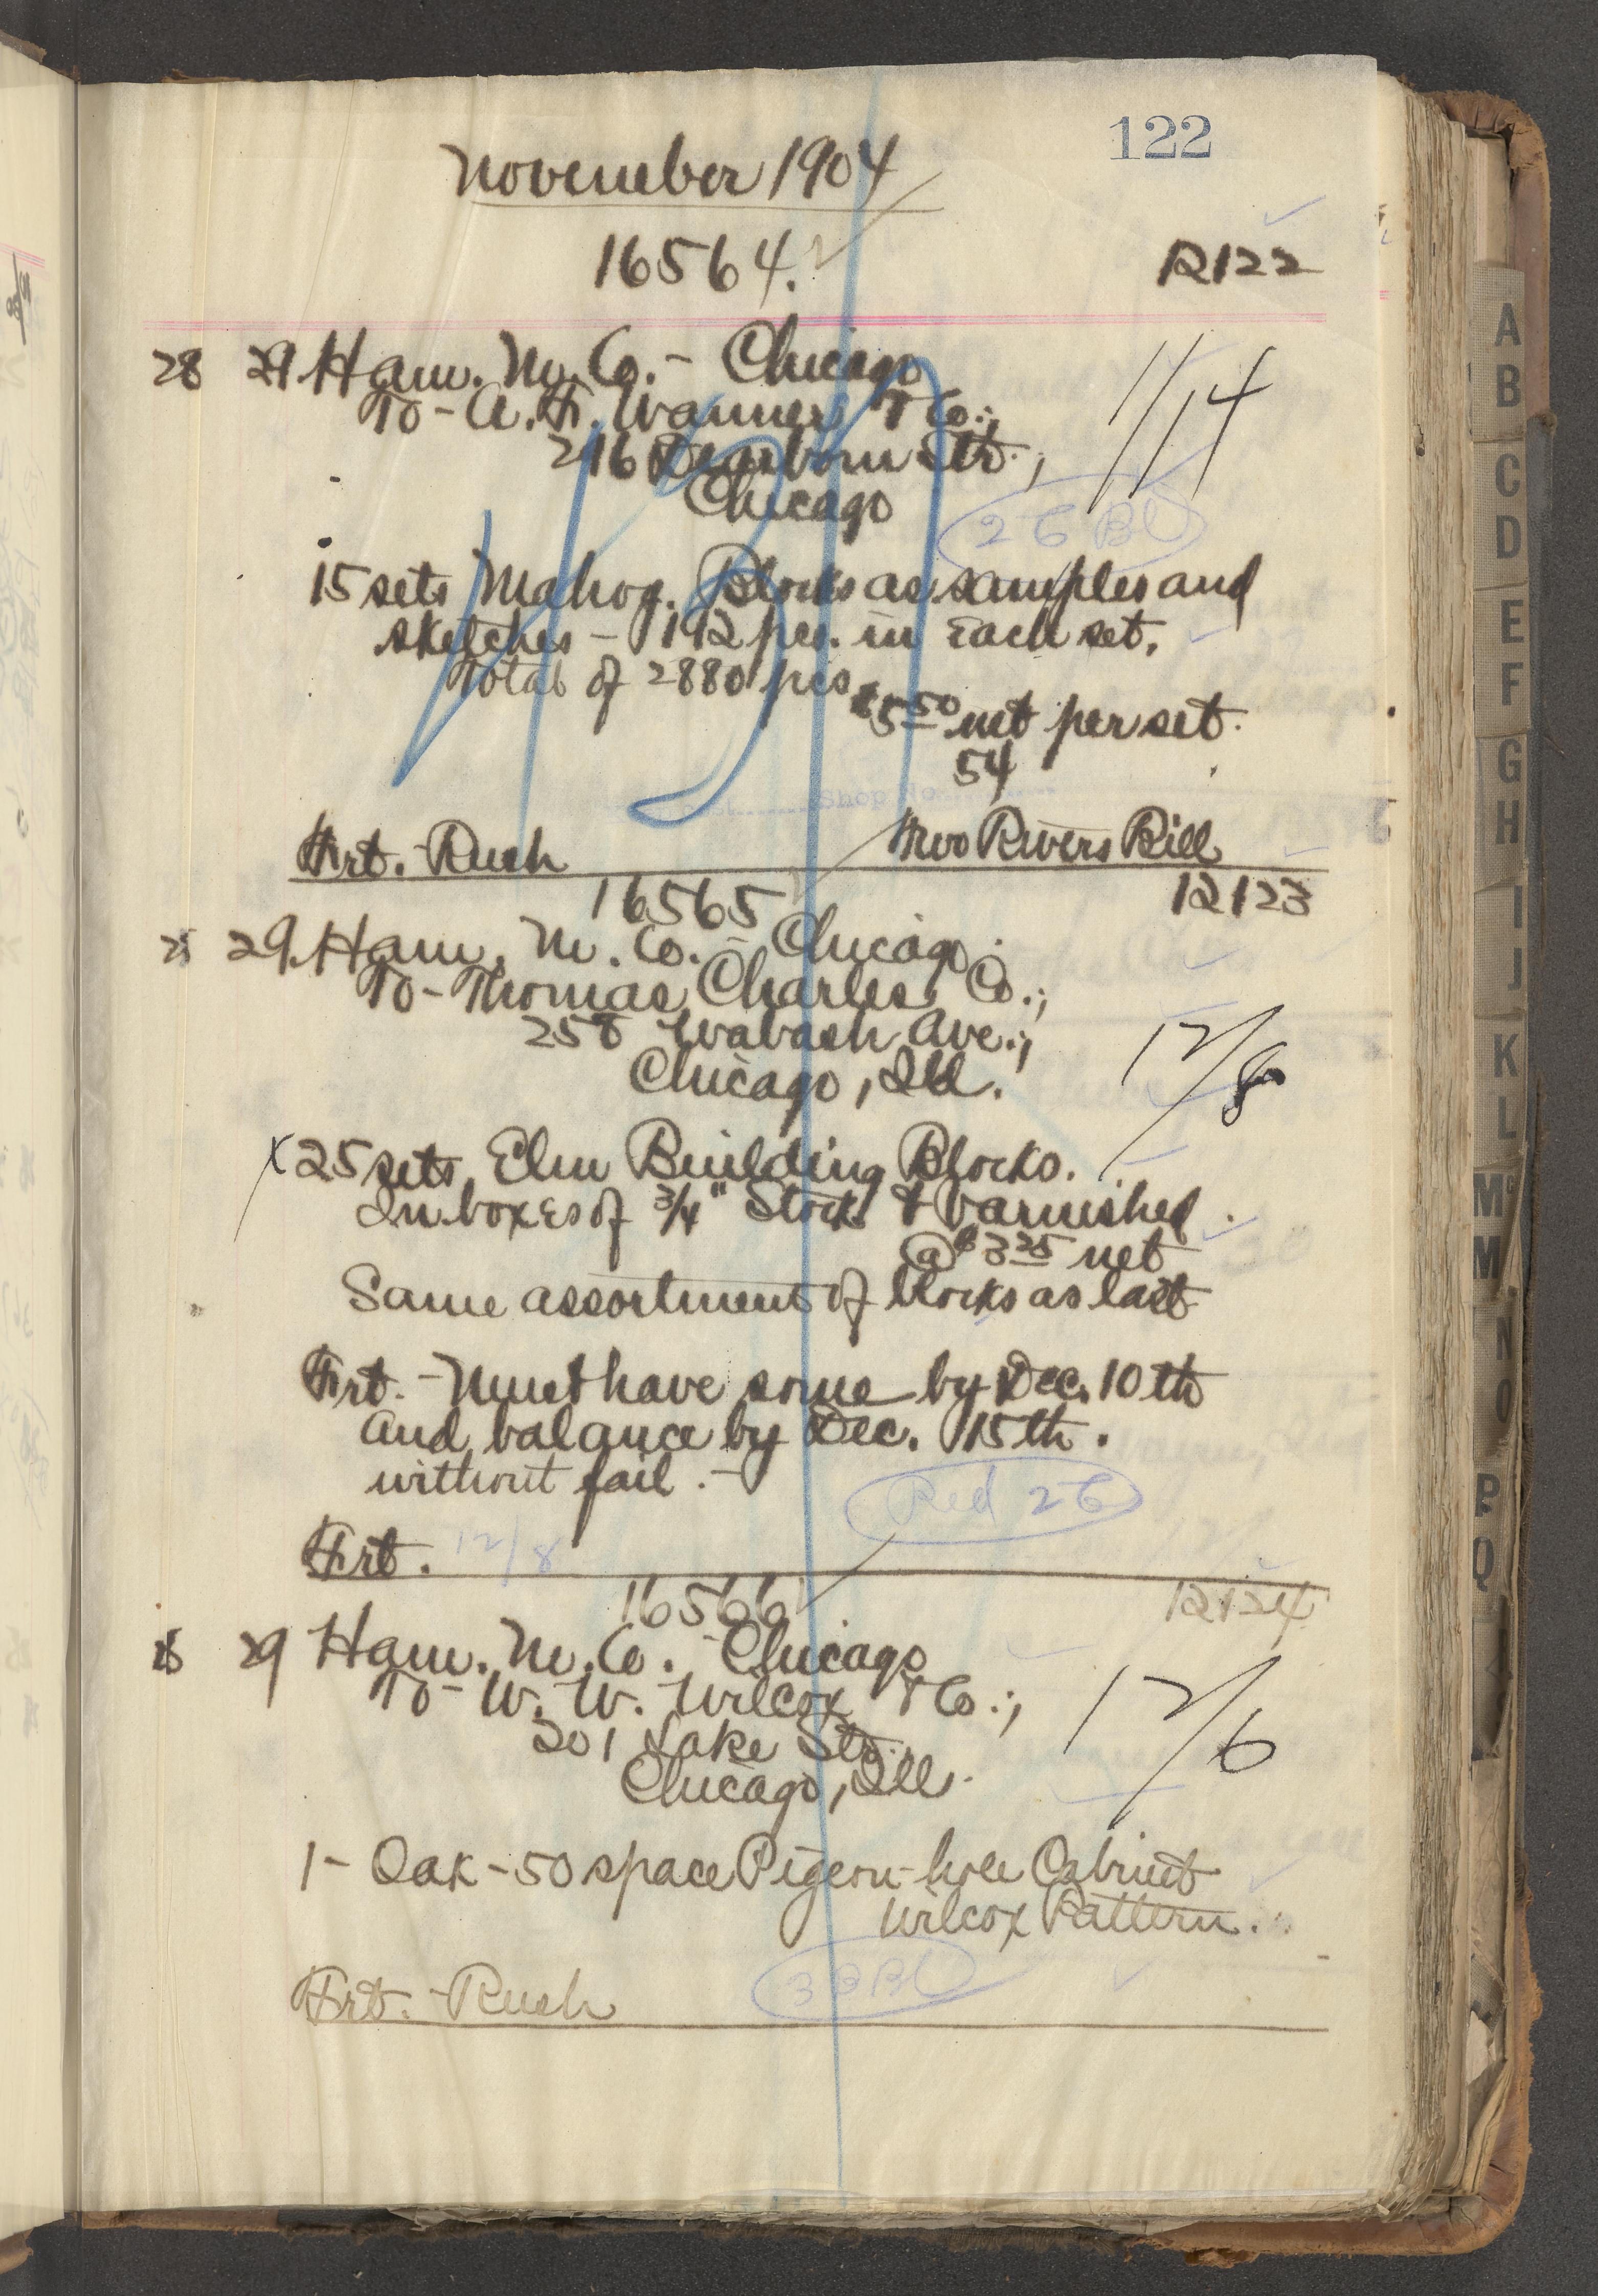 122
November 1904
16564.
12122
28 29 Ham. M. Co. - Chicago
To - A. F. Wanner & Co.;
216 Dearborn Str.;
Chicago
1/14
15 sets Mahog. Blocks as samples and
sketches - 192 pcs. in Each set.
Total of 2880 pcs
$5.50 net per set.
54
Shop No.
Frt. - Rush
Two Rivers Bill
16565
12123
29. Ham. M. Co. - Chicago.
To - Thomas Charles Co.;
258 Wabash Ave.;
Chicago, Ill.
12/8
X 25 sets Elm Building Blocks.
In boxes of 3/4" Stock & Varnished.
@ $3.25 net
Same assortment of blocks as last
Frt. - Must have some by Dec. 10th
and balance by Dec. 15th.
without fail. -
Red 26
Frt. 12/8
16566
12124
29 Ham. M. Co. - Chicago
To - W. W. Wilcox & Co.;
201 Lake Str.
Chicago, Ill.
12/6
1 - Oak - 50 space Pigeon-hole Cabinet
Wilcox Pattern.
Frt. - Rush
A
B
C
D
E
F
G
H
I
J
K
L
M
M
N
O
P
Q